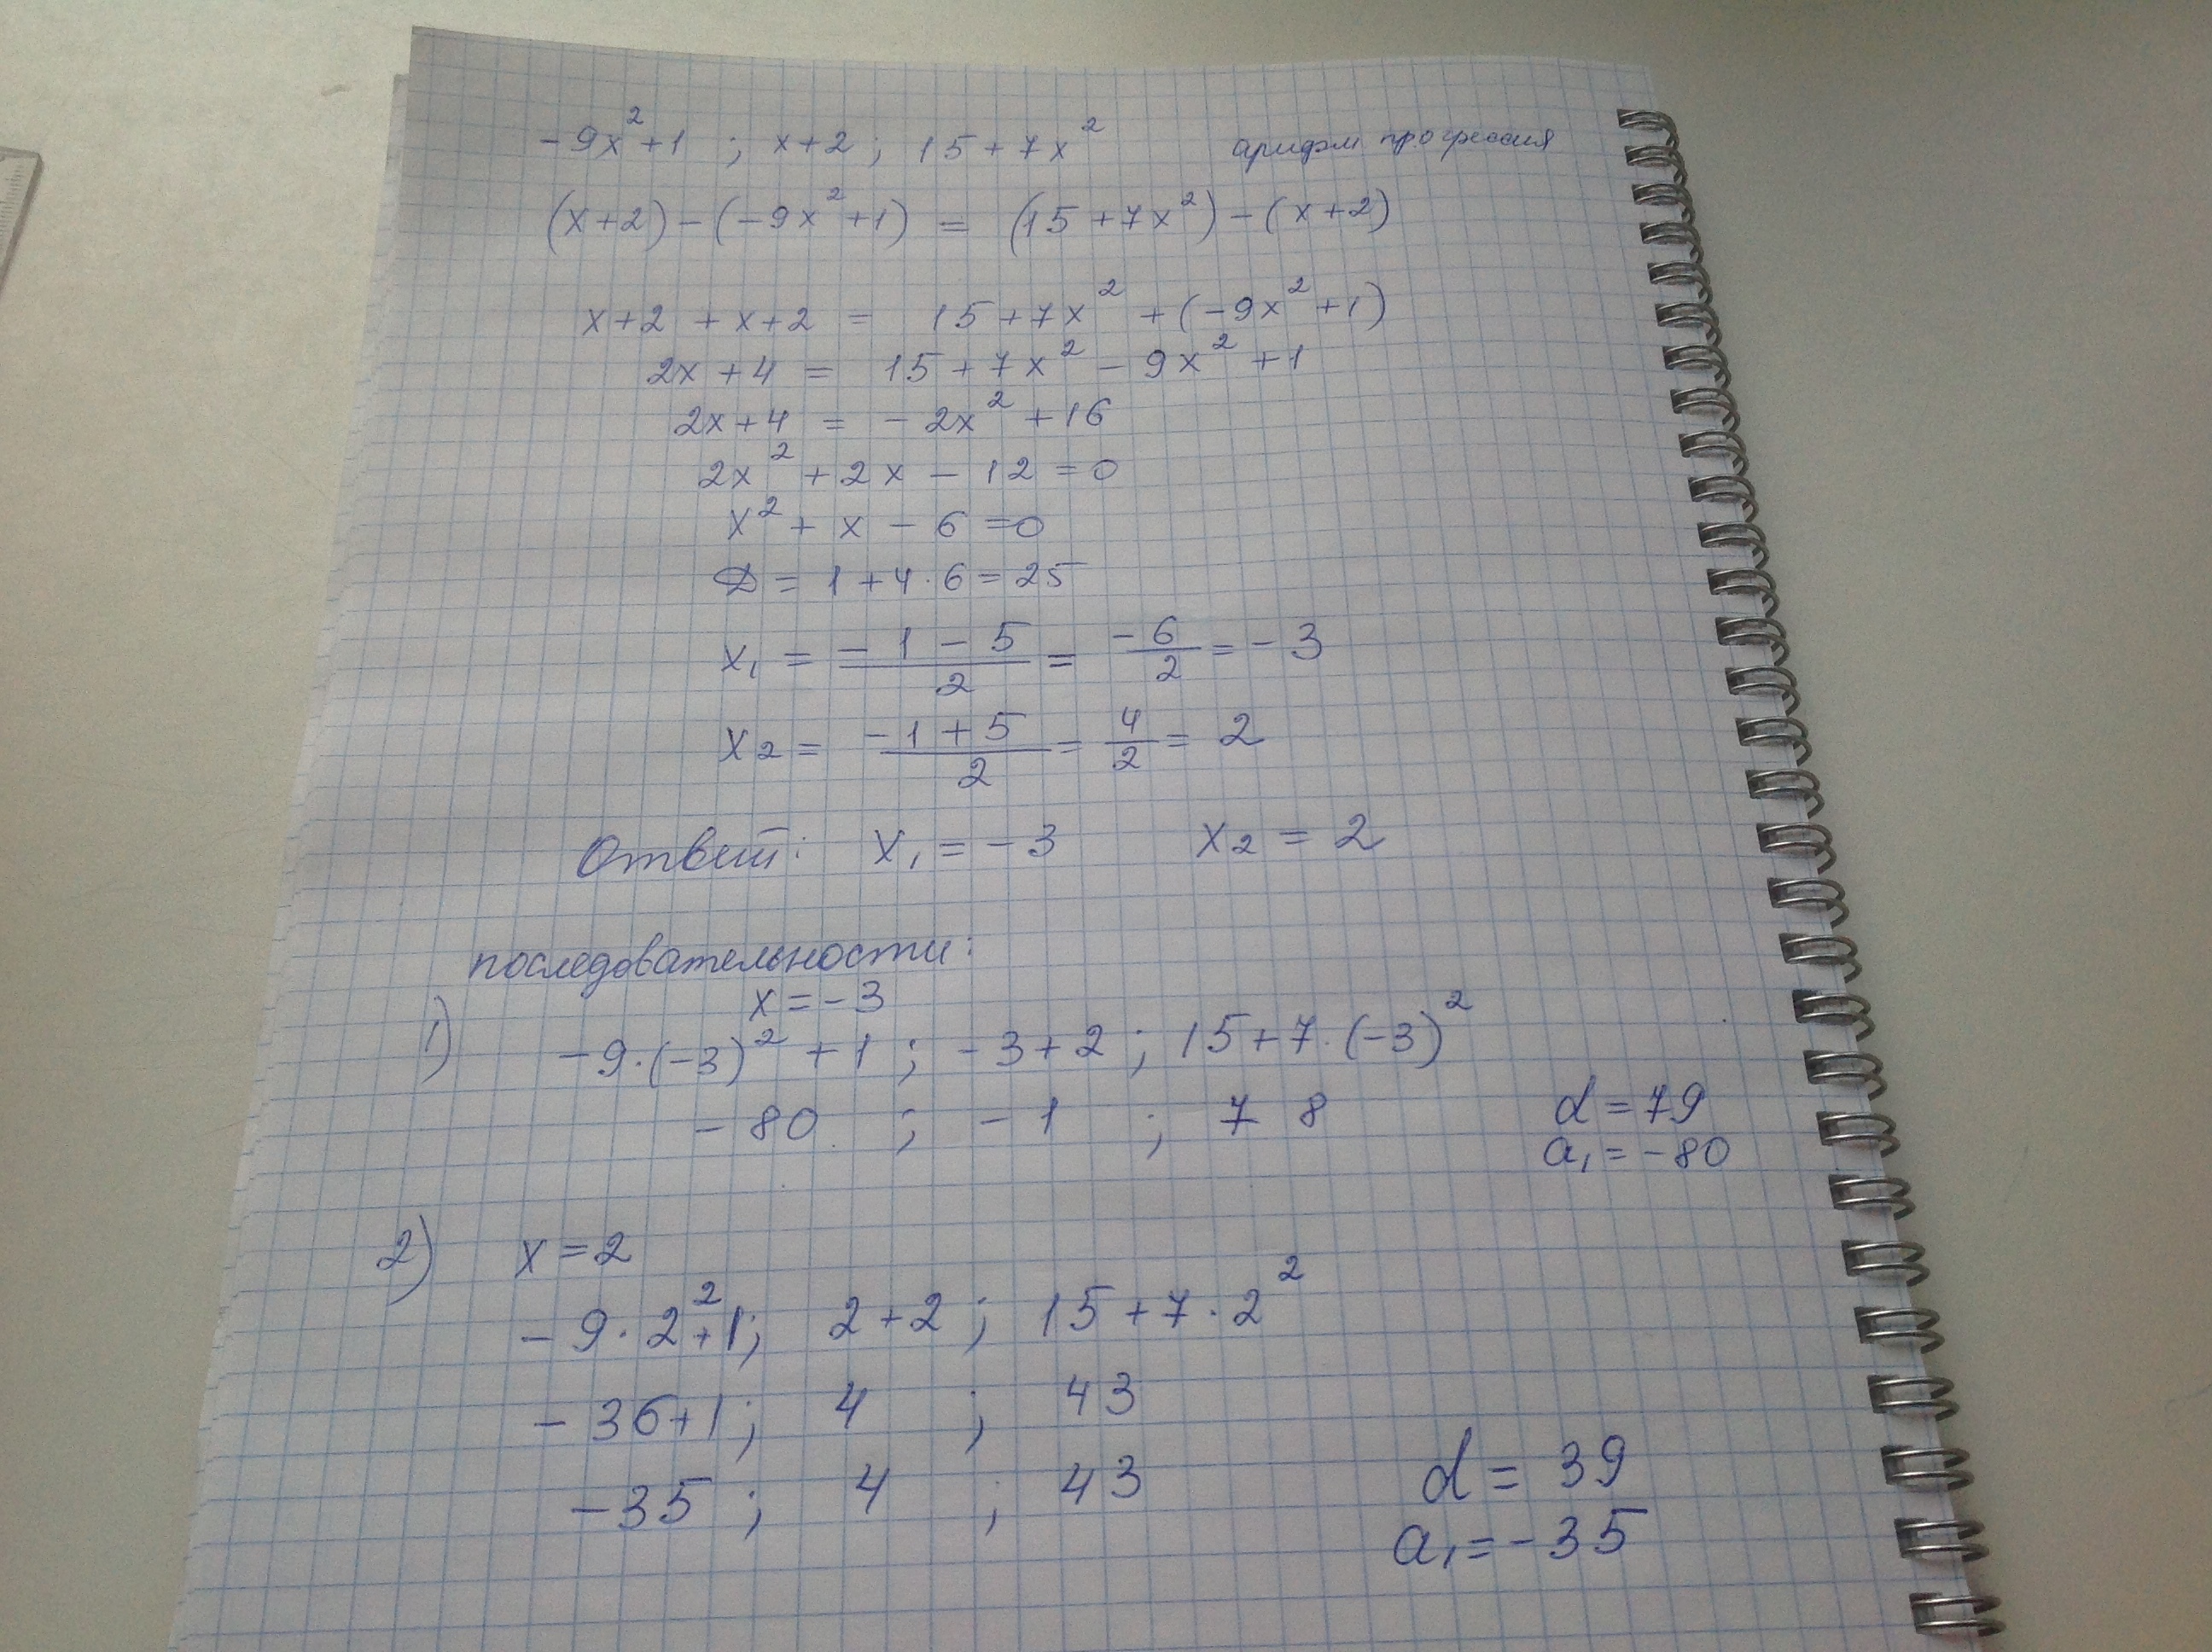 -9x²+1 ; x+2 ; 15+7x² арифм прогрессия
(x+2)-(-9x²+1) = (15+7x²)-(x+2)
x+2 + x+2 = 15+7x² +(-9x²+1)
2x+4 = 15+7x² - 9x² +1
2x+4 = - 2x² +16
2x² +2x - 12 =0
x² + x - 6 =0
D = 1+4·6=25
x₁ = (-1-5)/2 = -6/2 = -3
x₂ = (-1+5)/2 = 4/2 = 2
Ответ: x₁=-3 x₂=2
последовательности:
x=-3
1) -9·(-3)² +1 ; -3+2 ; 15+7·(-3)²
-80 ; -1 ; 78 d=79
a₁=-80
2) x=2
-9·2²+1; 2+2 ; 15+7·2²
-36+1; 4 ; 43
-35 ; 4 ; 43 d= 39
a₁=-35